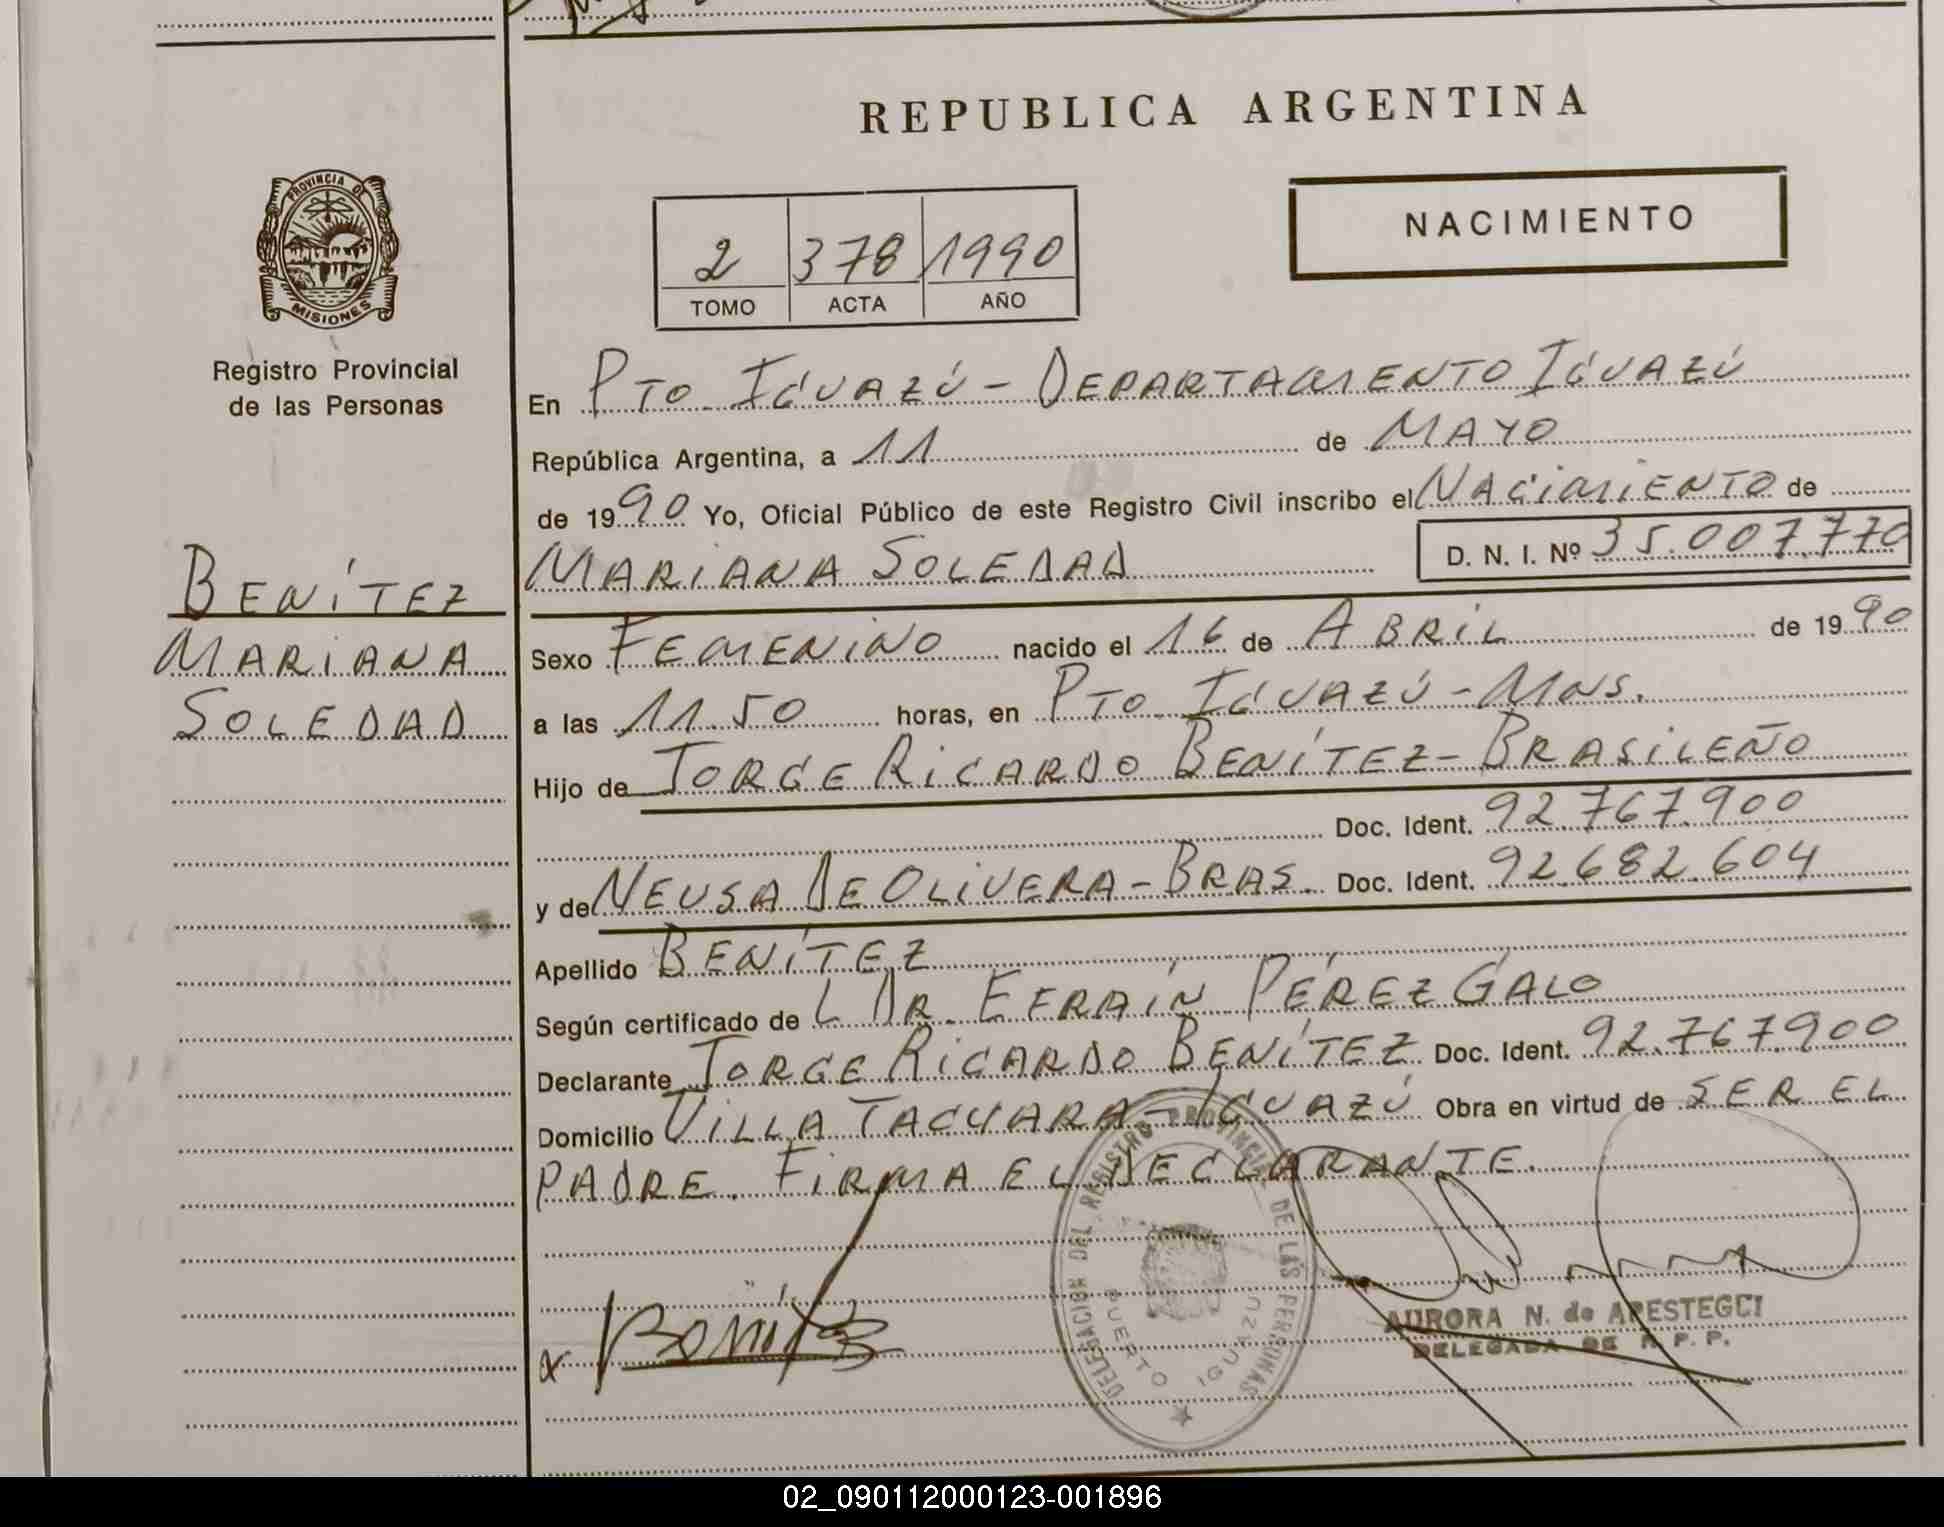 REPUBLICA ARGENTINA
PROVINCIA DE
MISIONES
Registro Provincial
de las Personas
NACIMIENTO
2 378 1990
TOMO ACTA AÑO
En PTO. IGUAZÚ - DEPARTAMENTO IGUAZÚ
República Argentina, a 11 de MAYO
de 1990 Yo, Oficial Público de este Registro Civil inscribo el NACIMIENTO de
MARIANA SOLEDAD D. N. I. Nº 35.007.770
BENÍTEZ
MARIANA
SOLEDAD
Sexo FEMENINO nacido el 16 de ABRIL de 1990
a las 11.50 horas, en PTO. IGUAZÚ - MNS.
Hijo de JORGE RICARDO BENÍTEZ - BRASILEÑO
Doc. Ident. 92.767.900
y de NEUSA DE OLIVERA - BRAS. Doc. Ident. 92.682.604
Apellido BENÍTEZ
Según certificado de L DR. EFRAÍN PÉREZ GALO
Declarante JORGE RICARDO BENÍTEZ Doc. Ident. 92.767.900
Domicilio VILLA TACUARA - IGUAZÚ Obra en virtud de SER EL
PADRE. FIRMA EL DECLARANTE.
DELEGACION DEL REGISTRO PROVINCIAL DE LAS PERSONAS
PUERTO IGUAZU
x Benítez
AURORA N. de APESTEGUI
DELEGADA DE R. P. P.
02_090112000123-001896